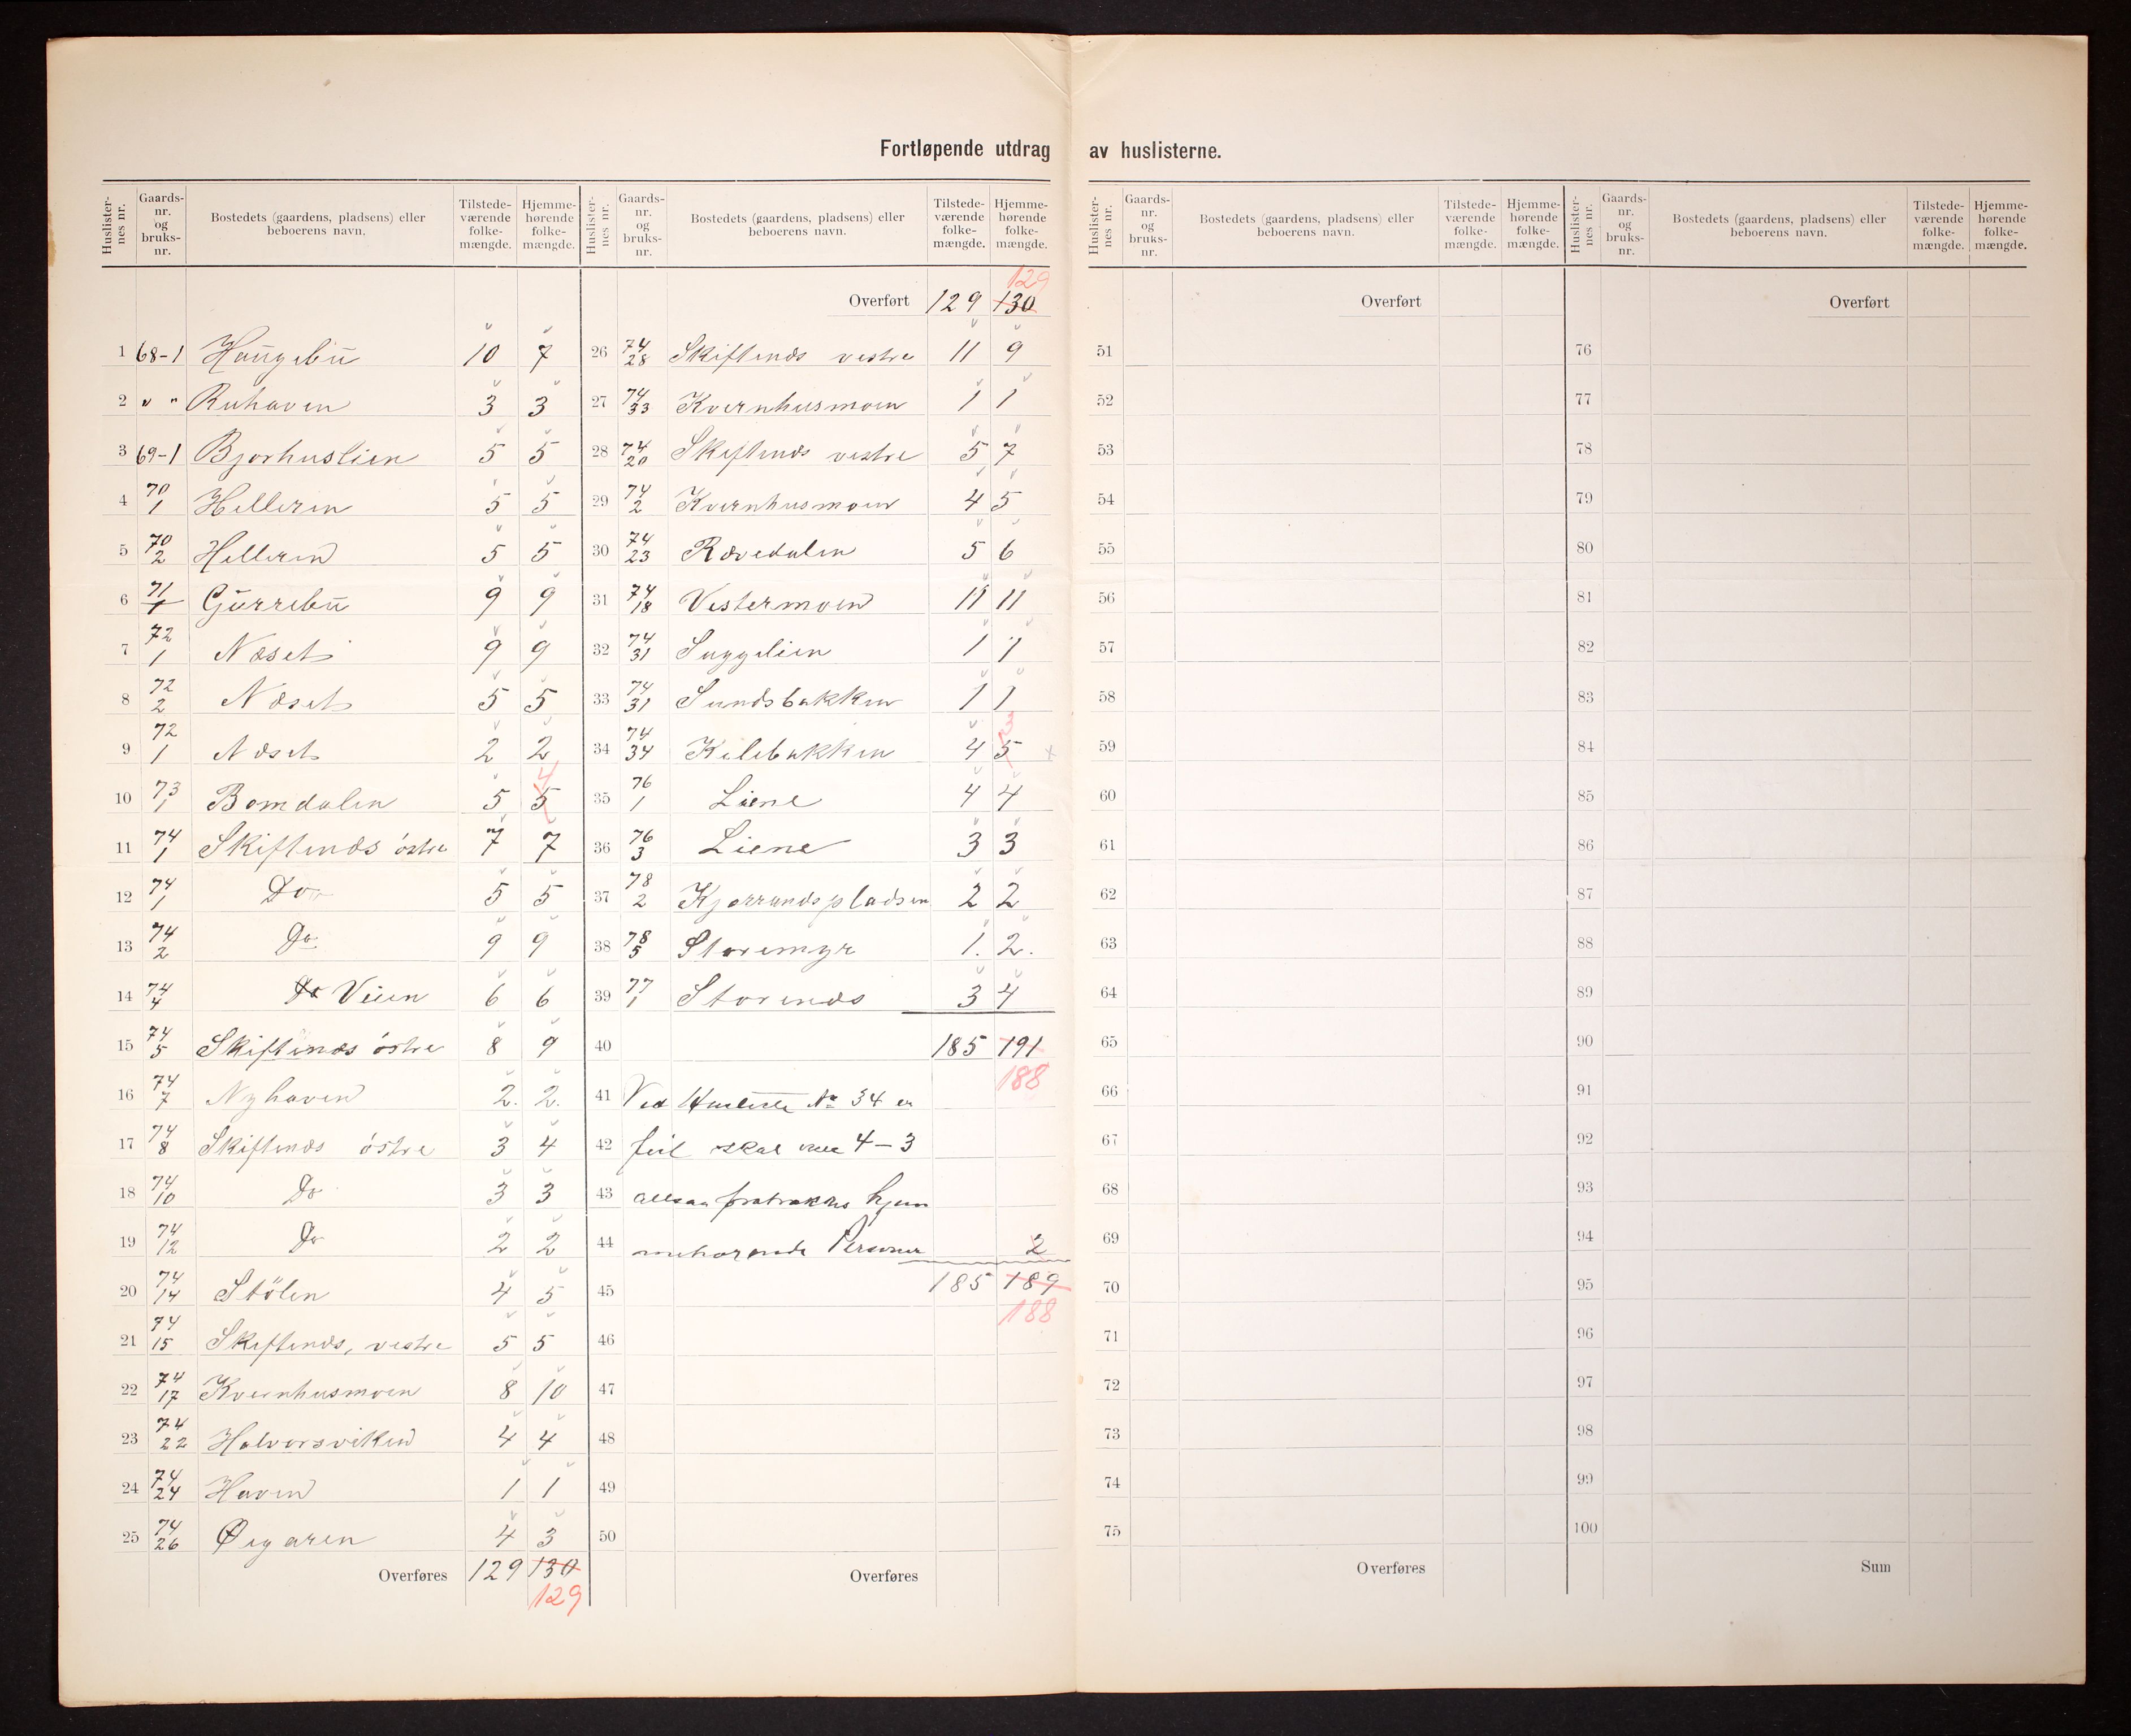 Fortløpende utdrag av huslisterne.
Huslister-nes nr. Gaards-nr. og bruks-nr. Bostedets (gaardens, pladsens) eller beboerens navn. Tilstede-værende folke-mængde. Hjemme-hørende folke-mængde.
1 68-1 Haugebu 10 7
2 " " Ruhaven 3 3
3 69-1 Bjorhuslien 5 5
4 70 1 Helleren 5 5
5 70 2 Helleren 5 5
6 71 1 Gurrebu 9 9
7 72 1 Næset 9 9
8 72 2 Næset 5 5
9 72 1 Næset 2 2
10 73 1 Bomdalen 5 5 4
11 74 1 Skiftenæs østre 7 7
12 74 1 Do 5 5
13 74 2 Do 9 9
14 74 4 Do Veien 6 6
15 74 5 Skiftenæs østre 8 9
16 74 7 Nyhaven 2. 2.
17 74 8 Skiftenæs østre 3 4
18 74 10 Do 3 3
19 74 12 Do 2 2
20 74 14 Stölen 4 5
21 74 15 Skiftenæs, vestre 5 5
22 74 17 Kvernhusmoen 8 10
23 74 22 Halvorsviken 4 4
24 74 24 Haven 1 1
25 74 26 Øigaren 4 3
Overføres 129 130
129
Huslister-nes nr. Gaards-nr. og bruks-nr. Bostedets (gaardens, pladsens) eller beboerens navn. Tilstede-værende folke-mængde. Hjemme-hørende folke-mængde.
129
Overført 129 130
26 74 28 Skiftenæs vestre 11 9
27 74 33 Kvernhusmoen 1 1
28 74 20 Skiftenæs vestre 5 7
29 74 2 Kvernhusmoen 4 5
30 74 23 Rævedalen 5 6
31 74 18 Vestermoen 11 11
32 74 31 Suggelien 1 1
33 74 31 Sundsbakken 1 1
34 74 34 Kilebakken 4 5
35 76 1 Liene 4 4
36 76 3 Liene 3 3
37 78 2 Kjørrundspladsen 2 2
38 78 5 Storemyr 1. 2.
39 77 1 Storenæs 3 4
40 185 191
188
41 Ved Husliste No 34 er
42 feil skal være 4-3
43 altsaa fratrækkes hjem
44 mehørende Personer 2
45 185 189
188
46
47
48
49
50
Overføres
Huslister-nes nr. Gaards-nr. og bruks-nr. Bostedets (gaardens, pladsens) eller beboerens navn. Tilstede-værende folke-mængde. Hjemme-hørende folke-mængde.
Overført
51
52
53
54
55
56
57
58
59
60
61
62
63
64
65
66
67
68
69
70
71
72
73
74
75
Overføres
Huslister-nes nr. Gaards-nr. og bruks-nr. Bostedets (gaardens, pladsens) eller beboerens navn. Tilstede-værende folke-mængde. Hjemme-hørende folke-mængde.
Overført
76
77
78
79
80
81
82
83
84
85
86
87
88
89
90
91
92
93
94
95
96
97
98
99
100
Sum